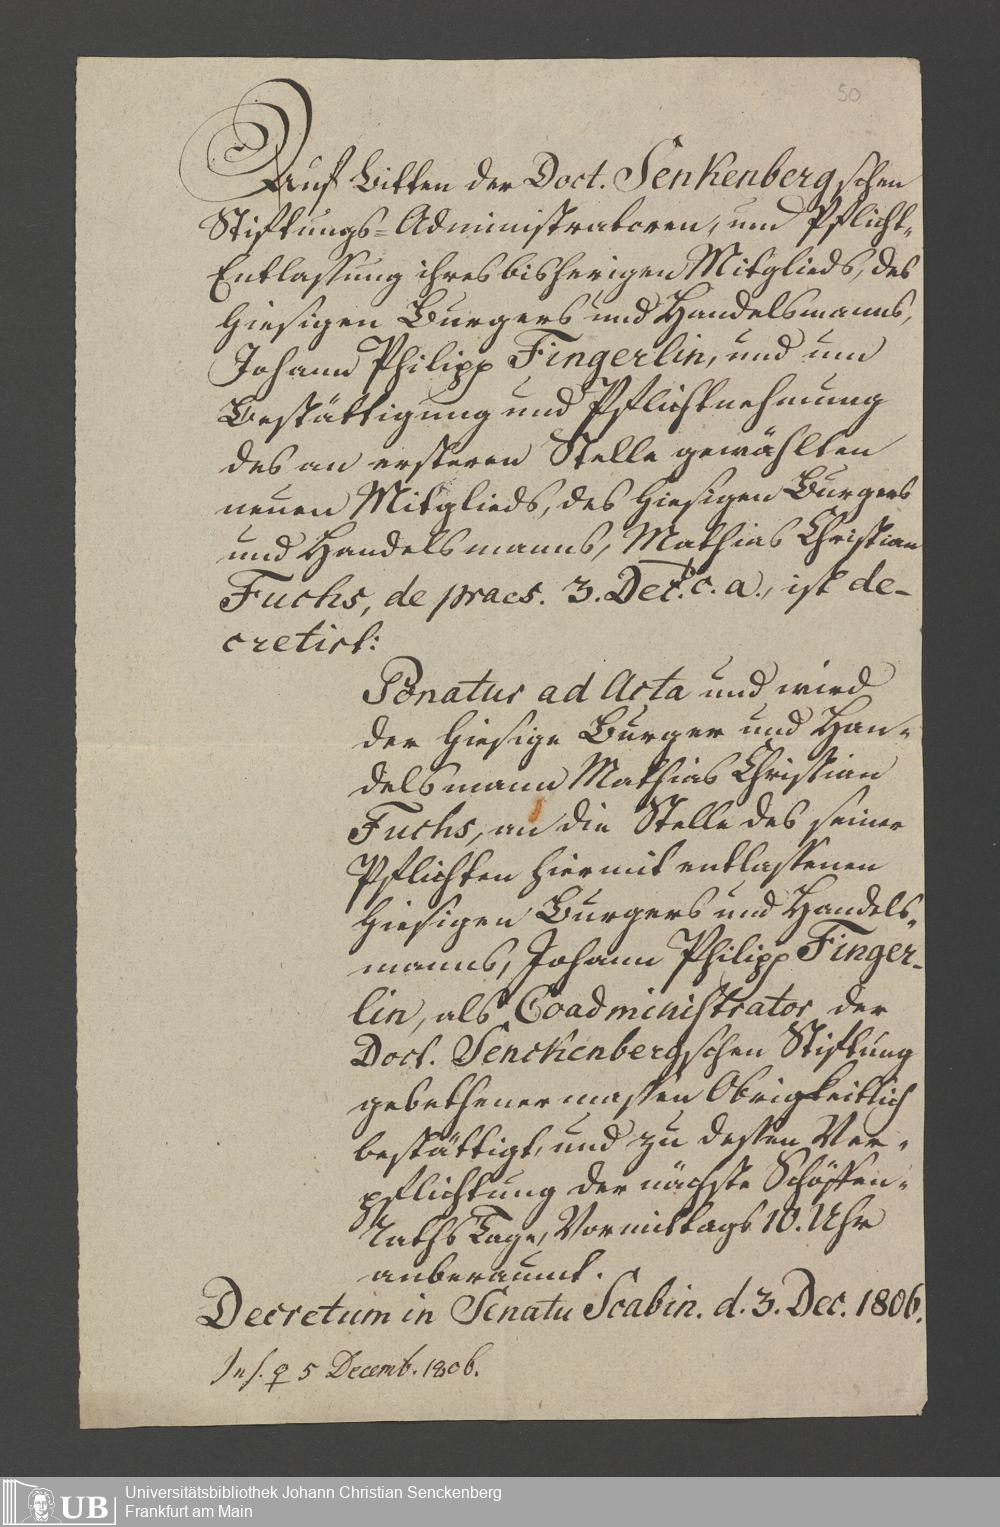 50
Auf Bitten der Doct. Senkenbergschen
Stiftungs-Administratoren, um Pflicht-
Entlassung ihres bisherigen Mitglieds, des
hiesigen Burgers und Handelsmanns,
Johann Philipp Fingerlin, und um
Bestättigung und Pflichtnehmung
des an ersteren Stelle gewählten
neuen Mitglieds, des hiesigen Burgers
und Handelsmanns, Mathias Christian
Fuchs, de praes. 3. Dec. c. a., ist de-
cretirt:
Ponatur ad Acta und wird
der hiesige Burger und Han-
delsmann Mathias Christian
Fuchs, an die Stelle des seiner
Pflichten hiermit entlassenen
hiesigen Burgers und Handels-
manns, Johann Philipp Finger-
lin, als Coadministrator der
Doct. Senckenbergschen Stiftung
gebethenermassen Obrigkeitlich
bestättigt, und zu dessen Ver-
pflichtung der nächste Schöffen-
Raths Tage, Vormittags 10. Uhr
anberaumt.
Decretum in Senatu Scabin. d. 3. Dec. 1806.
Ins. 5 Decemb. 1806.
UB
Universitätsbibliothek Johann Christian Senckenberg
Frankfurt am Main